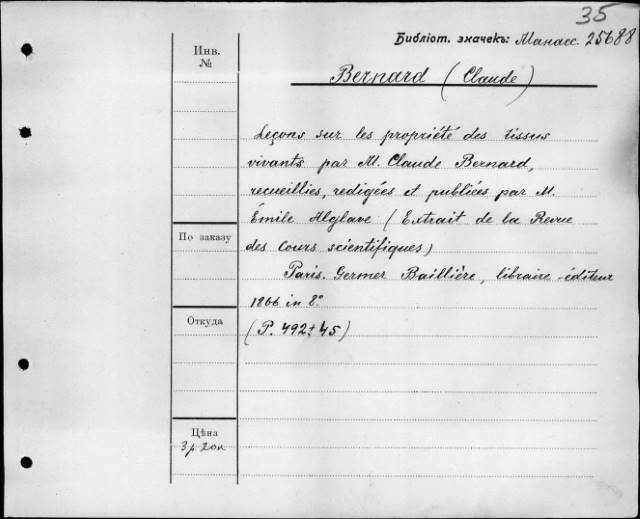 35
Библіот. значекъ: Манасс. 25688
Инв.
№
Bernard (Claude)
Leçons sur les propriété des tissus
vivants par M. Claude Bernard,
recueillies, redigées et publiées par M.
Émile Alglave (Extrait de la Revue
По заказу
des Cours scientifiques)
Paris. Germer Baillière, libraire-éditeur
1866 in 8°
Откуда
(P. 492+45)
Цѣна
3 р 20 к